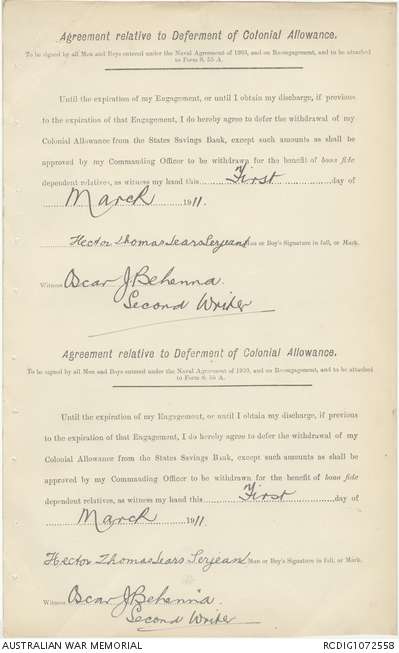 Agreement relative to Deferment of Colonial Allowance.
To be signed by all Men and Boys entered under the Naval Agreement of 1903, and on Re-engagement, and to be attached
to Form S. 55 A.
Until the expiration of my Engagement, or until I obtain my discharge, if previous
to the expiration of that Engagement, I do hereby agree to defer the withdrawal of my
Colonial Allowance from the States Savings Bank, except such amounts as shall be
approved by my Commanding Officer to be withdrawn for the benefit of bona fide
dependent relatives, as witness my hand this First day of
March 1911.
Hector Thomas Sears Serjeant Man or Boy's Signature in full, or Mark.
Witness Oscar J. Behenna
Second Writer
Agreement relative to Deferment of Colonial Allowance.
To be signed by all Men and Boys entered under the Naval Agreement of 1903, and on Re-engagement, and to be attached
to Form S. 55 A.
Until the expiration of my Engagement, or until I obtain my discharge, if previous
to the expiration of that Engagement, I do hereby agree to defer the withdrawal of my
Colonial Allowance from the States Savings Bank, except such amounts as shall be
approved by my Commanding Officer to be withdrawn for the benefit of bona fide
dependent relatives, as witness my hand this First day of
March 1911
Hector Thomas Sears Serjean Man or Boy's Signature in full, or Mark.
Witness Oscar J. Behenna.
Second Writer
AUSTRALIAN WAR MEMORIAL RCDIG1072558